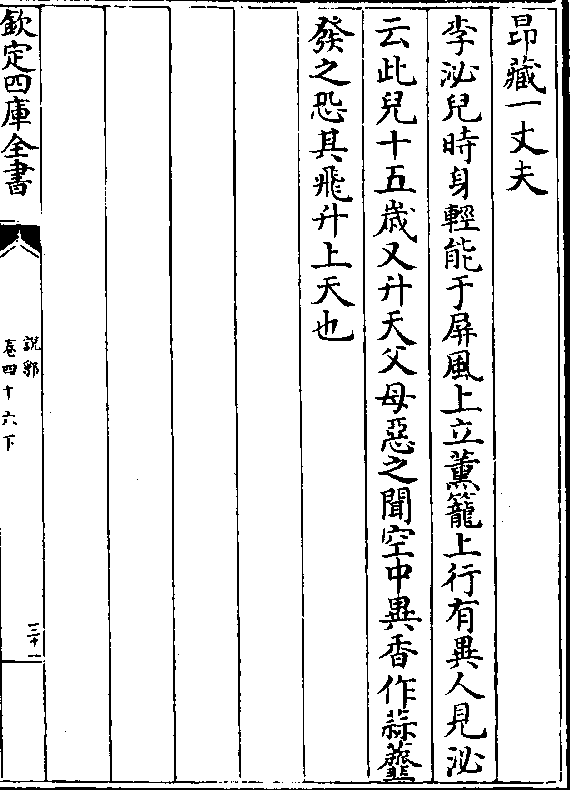 昂藏一丈夫
李泌兒時身輕能于屏風上立薰籠上行有異人見泌
云此兒十五歲又升天父母惡之聞空中異香作蒜虀
發之恐其飛升上天也
欽定四庫全書
說郛
卷四十六下
三十一